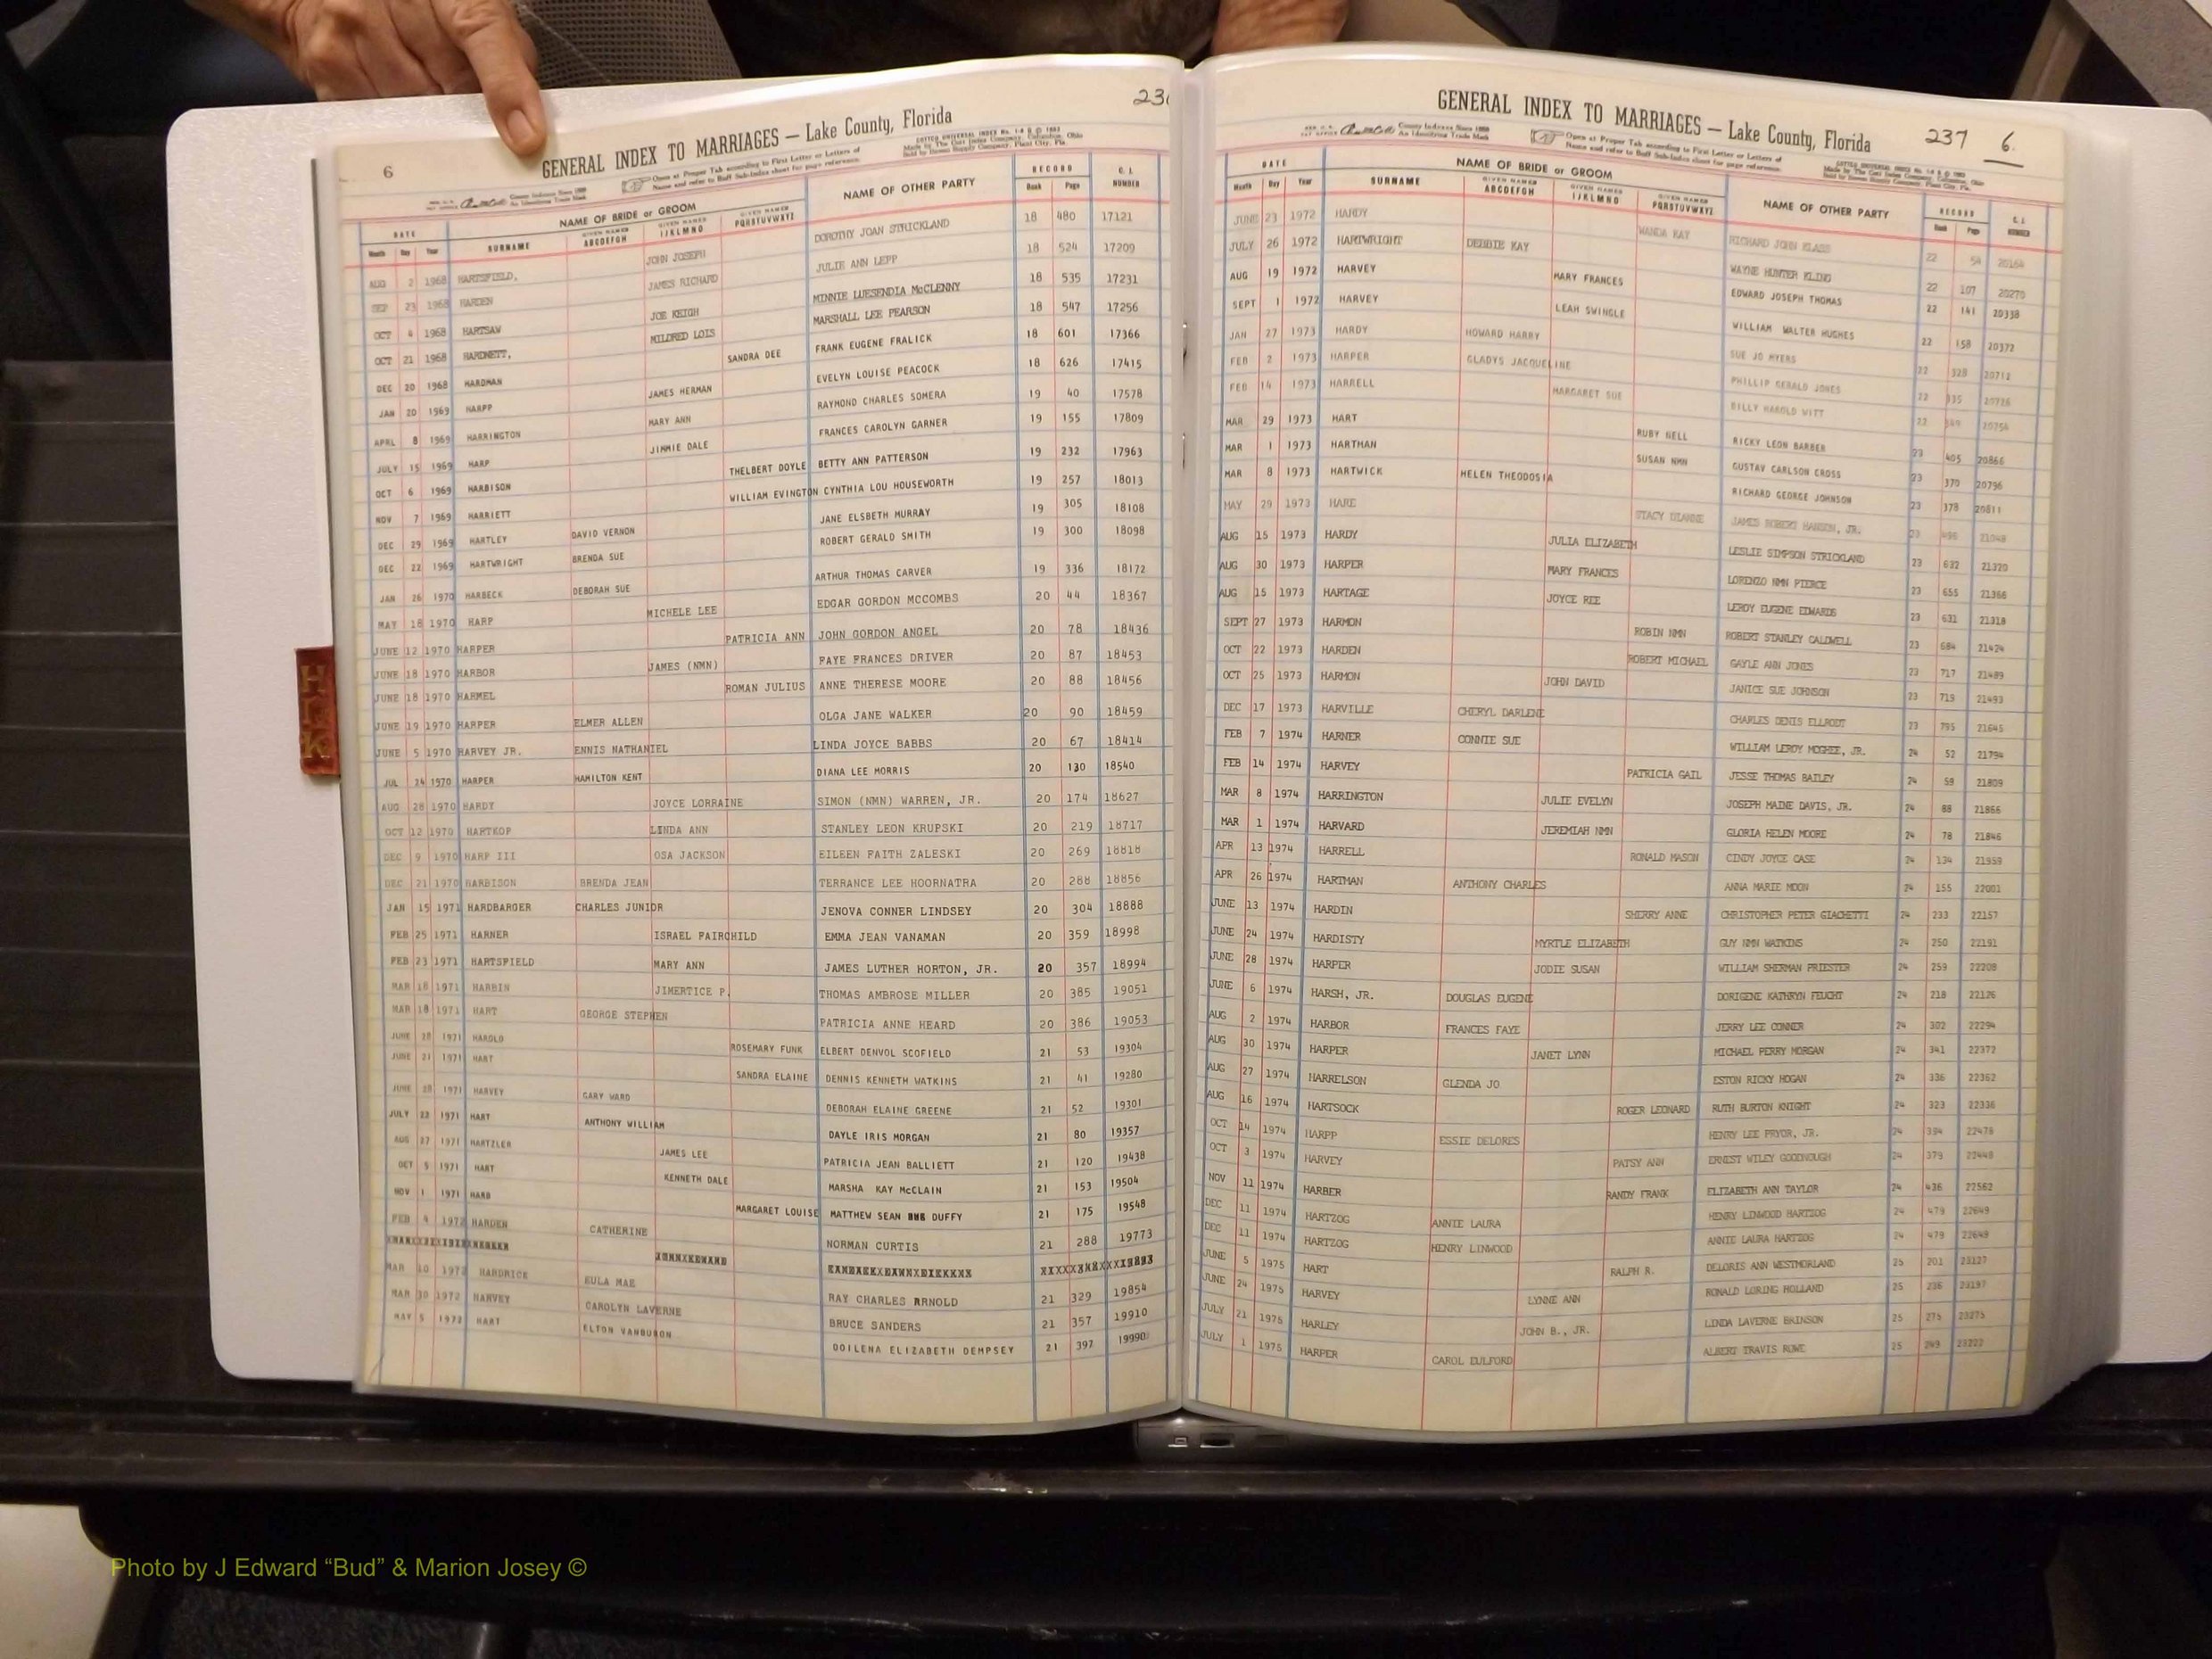 6
236
GENERAL INDEX TO MARRIAGES — Lake County, Florida
County Indexes Since 1888
An Identifying Trade Mark
Open at Proper Tab according to First Letter or Letters of
Name and refer to Buff Sub-Index sheet for page reference.
DATE NAME OF BRIDE or GROOM NAME OF OTHER PARTY RECORD C. L. NUMBER
Month Day Year SURNAME GIVEN NAMES ABCDEFGH GIVEN NAMES IJKLMNO GIVEN NAMES PQRSTUVWXYZ Book Page
AUG 2 1968 HARTSFIELD, JOHN JOSEPH DOROTHY JOAN STRICKLAND 18 480 17121
SEP 23 1968 HARDEN JAMES RICHARD JULIE ANN LEPP 18 524 17209
OCT 4 1968 HARTSAW JOE KEIGH MINNIE LUESENDIA McCLENNY 18 535 17231
OCT 21 1968 HARDNETT, MILDRED LOIS MARSHALL LEE PEARSON 18 547 17256
DEC 20 1968 HARDMAN SANDRA DEE FRANK EUGENE FRALICK 18 601 17366
JAN 20 1969 HARPP JAMES HERMAN EVELYN LOUISE PEACOCK 18 626 17415
APRL 8 1969 HARRINGTON MARY ANN RAYMOND CHARLES SOMERA 19 40 17578
JULY 15 1969 HARP JIMMIE DALE FRANCES CAROLYN GARNER 19 155 17809
OCT 6 1969 HARBISON THELBERT DOYLE BETTY ANN PATTERSON 19 232 17963
NOV 7 1969 HARRIETT WILLIAM EVINGTON CYNTHIA LOU HOUSEWORTH 19 257 18013
DEC 29 1969 HARTLEY DAVID VERNON JANE ELSBETH MURRAY 19 305 18108
DEC 22 1969 HARTWRIGHT BRENDA SUE ROBERT GERALD SMITH 19 300 18098
JAN 26 1970 HARBECK DEBORAH SUE ARTHUR THOMAS CARVER 19 336 18172
MAY 18 1970 HARP MICHELE LEE EDGAR GORDON MCCOMBS 20 44 18367
JUNE 12 1970 HARPER PATRICIA ANN JOHN GORDON ANGEL 20 78 18436
JUNE 18 1970 HARBOR JAMES (NMN) FAYE FRANCES DRIVER 20 87 18453
JUNE 18 1970 HARMEL ROMAN JULIUS ANNE THERESE MOORE 20 88 18456
JUNE 19 1970 HARPER ELMER ALLEN OLGA JANE WALKER 20 90 18459
JUNE 5 1970 HARVEY JR. ENNIS NATHANIEL LINDA JOYCE BABBS 20 67 18414
JUL 24 1970 HARPER HAMILTON KENT DIANA LEE MORRIS 20 130 18540
AUG 28 1970 HARDY JOYCE LORRAINE SIMON (NMN) WARREN, JR. 20 174 18627
OCT 12 1970 HARTKOP LINDA ANN STANLEY LEON KRUPSKI 20 219 18717
DEC 9 1970 HARP III OSA JACKSON EILEEN FAITH ZALESKI 20 269 18818
DEC 21 1970 HARBISON BRENDA JEAN TERRANCE LEE HOORNATRA 20 288 18856
JAN 15 1971 HARDBARGER CHARLES JUNIOR JENOVA CONNER LINDSEY 20 304 18888
FEB 25 1971 HARNER ISRAEL FAIRCHILD EMMA JEAN VANAMAN 20 359 18998
FEB 23 1971 HARTSFIELD MARY ANN JAMES LUTHER HORTON, JR. 20 357 18994
MAR 18 1971 HARBIN JIMERTICE P. THOMAS AMBROSE MILLER 20 385 19051
MAR 18 1971 HART GEORGE STEPHEN PATRICIA ANNE HEARD 20 386 19053
JUNE 28 1971 HAROLD ROSEMARY FUNK ELBERT DENVOL SCOFIELD 21 53 19304
JUNE 21 1971 HART SANDRA ELAINE DENNIS KENNETH WATKINS 21 41 19280
JUNE 28 1971 HARVEY GARY WARD DEBORAH ELAINE GREENE 21 52 19301
JULY 22 1971 HART ANTHONY WILLIAM DAYLE IRIS MORGAN 21 80 19357
AUG 27 1971 HARTZLER JAMES LEE PATRICIA JEAN BALLIETT 21 120 19438
OCT 5 1971 HART KENNETH DALE MARSHA KAY McCLAIN 21 153 19504
NOV 1 1971 HARB MARGARET LOUISE MATTHEW SEAN DUFFY 21 175 19548
FEB 4 1972 HARDEN CATHERINE NORMAN CURTIS 21 288 19773
MAR 10 1972 HARDRICK EULA MAE RAY CHARLES ARNOLD 21 329 19854
MAR 30 1972 HARVEY CAROLYN LAVERNE BRUCE SANDERS 21 357 19910
MAY 5 1972 HART ELTON VANBURON DOILENA ELIZABETH DEMPSEY 21 397 19990
H I-K
237 6.
GENERAL INDEX TO MARRIAGES — Lake County, Florida
County Indexes Since 1888
An Identifying Trade Mark
Open at Proper Tab according to First Letter or Letters of
Name and refer to Buff Sub-Index sheet for page reference.
DATE NAME OF BRIDE or GROOM NAME OF OTHER PARTY RECORD C. L. NUMBER
Month Day Year SURNAME GIVEN NAMES ABCDEFGH GIVEN NAMES IJKLMNO GIVEN NAMES PQRSTUVWXYZ Book Page
JUNE 23 1972 HARDY WANDA KAY RICHARD JOHN KLASS 22 54 20164
JULY 26 1972 HARTWRIGHT DEBBIE KAY WAYNE HUNTER KLING 22 107 20270
AUG 19 1972 HARVEY MARY FRANCES EDWARD JOSEPH THOMAS 22 141 20338
SEPT 1 1972 HARVEY LEAH SWINGLE WILLIAM WALTER HUGHES 22 158 20372
JAN 27 1973 HARDY HOWARD HARRY SUE JO MYERS 22 328 20712
FEB 2 1973 HARPER GLADYS JACQUELINE PHILLIP GERALD JONES 22 335 20726
FEB 14 1973 HARRELL MARGARET SUE BILLY HAROLD WITT 22 349 20754
MAR 29 1973 HART RUBY NELL RICKY LEON BARBER 23 405 20866
MAR 1 1973 HARTHAN SUSAN NMN GUSTAV CARLSON CROSS 23 370 20796
MAR 8 1973 HARTWICK HELEN THEODOSIA RICHARD GEORGE JOHNSON 23 378 20811
MAY 29 1973 HARE STACY DEANNE JAMES ROBERT HANSON, JR. 23 496 21048
AUG 15 1973 HARDY JULIA ELIZABETH LESLIE SIMPSON STRICKLAND 23 632 21320
AUG 30 1973 HARPER MARY FRANCES LORENZO NMN PIERCE 23 655 21366
AUG 15 1973 HARTAGE JOYCE REE LEROY EUGENE EDWARDS 23 631 21318
SEPT 27 1973 HARMON ROBIN NMN ROBERT STANLEY CALDWELL 23 684 21424
OCT 22 1973 HARDEN ROBERT MICHAEL GAYLE ANN JONES 23 717 21489
OCT 25 1973 HARMON JOHN DAVID JANICE SUE JOHNSON 23 719 21493
DEC 17 1973 HARVILLE CHERYL DARLENE CHARLES DENIS ELLRODT 23 795 21645
FEB 7 1974 HARNER CONNIE SUE WILLIAM LEROY MCGHEE, JR. 24 52 21794
FEB 14 1974 HARVEY PATRICIA GAIL JESSE THOMAS BAILEY 24 59 21809
MAR 8 1974 HARRINGTON JULIE EVELYN JOSEPH MAINE DAVIS, JR. 24 88 21866
MAR 1 1974 HARVARD JEREMIAH NMN GLORIA HELEN MOORE 24 78 21846
APR 13 1974 HARRELL RONALD MASON CINDY JOYCE CASE 24 134 21959
APR 26 1974 HARTMAN ANTHONY CHARLES ANNA MARIE MOON 24 155 22001
JUNE 13 1974 HARDIN SHERRY ANNE CHRISTOPHER PETER GIACHETTI 24 233 22157
JUNE 24 1974 HARDISTY MYRTLE ELIZABETH GUY NMN WATKINS 24 250 22191
JUNE 28 1974 HARPER JODIE SUSAN WILLIAM SHERMAN PRIESTER 24 259 22208
JUNE 6 1974 HARSH, JR. DOUGLAS EUGENE DORIGENE KATHRYN FEUCHT 24 218 22126
AUG 2 1974 HARBOR FRANCES FAYE JERRY LEE CONNER 24 302 22294
AUG 30 1974 HARPER JANET LYNN MICHAEL PERRY MORGAN 24 341 22372
AUG 27 1974 HARRELSON GLENDA JO ESTON RICKY HOGAN 24 336 22362
AUG 16 1974 HARTSOCK ROGER LEONARD RUTH BURTON KNIGHT 24 323 22336
OCT 14 1974 HARPP ESSIE DELORES HENRY LEE PRYOR, JR. 24 394 22478
OCT 3 1974 HARVEY PATSY ANN ERNEST WILEY GOODNOUGH 24 379 22448
NOV 11 1974 HARBER RANDY FRANK ELIZABETH ANN TAYLOR 24 436 22562
DEC 11 1974 HARTZOG ANNIE LAURA HENRY LINWOOD HARTZOG 24 479 22649
DEC 11 1974 HARTZOG HENRY LINWOOD ANNIE LAURA HARTZOG 24 479 22649
JUNE 5 1975 HART RALPH R. DELORIS ANN WESTMORLAND 25 201 23127
JUNE 24 1975 HARVEY LYNNE ANN RONALD LORING HOLLAND 25 236 23197
JULY 21 1975 HARLEY JOHN B., JR. LINDA LAVERNE BRINSON 25 275 23275
JULY 1 1975 HARPER CAROL EULFORD ALBERT TRAVIS ROWE 25 249 23222
Photo by J Edward “Bud” & Marion Josey ©